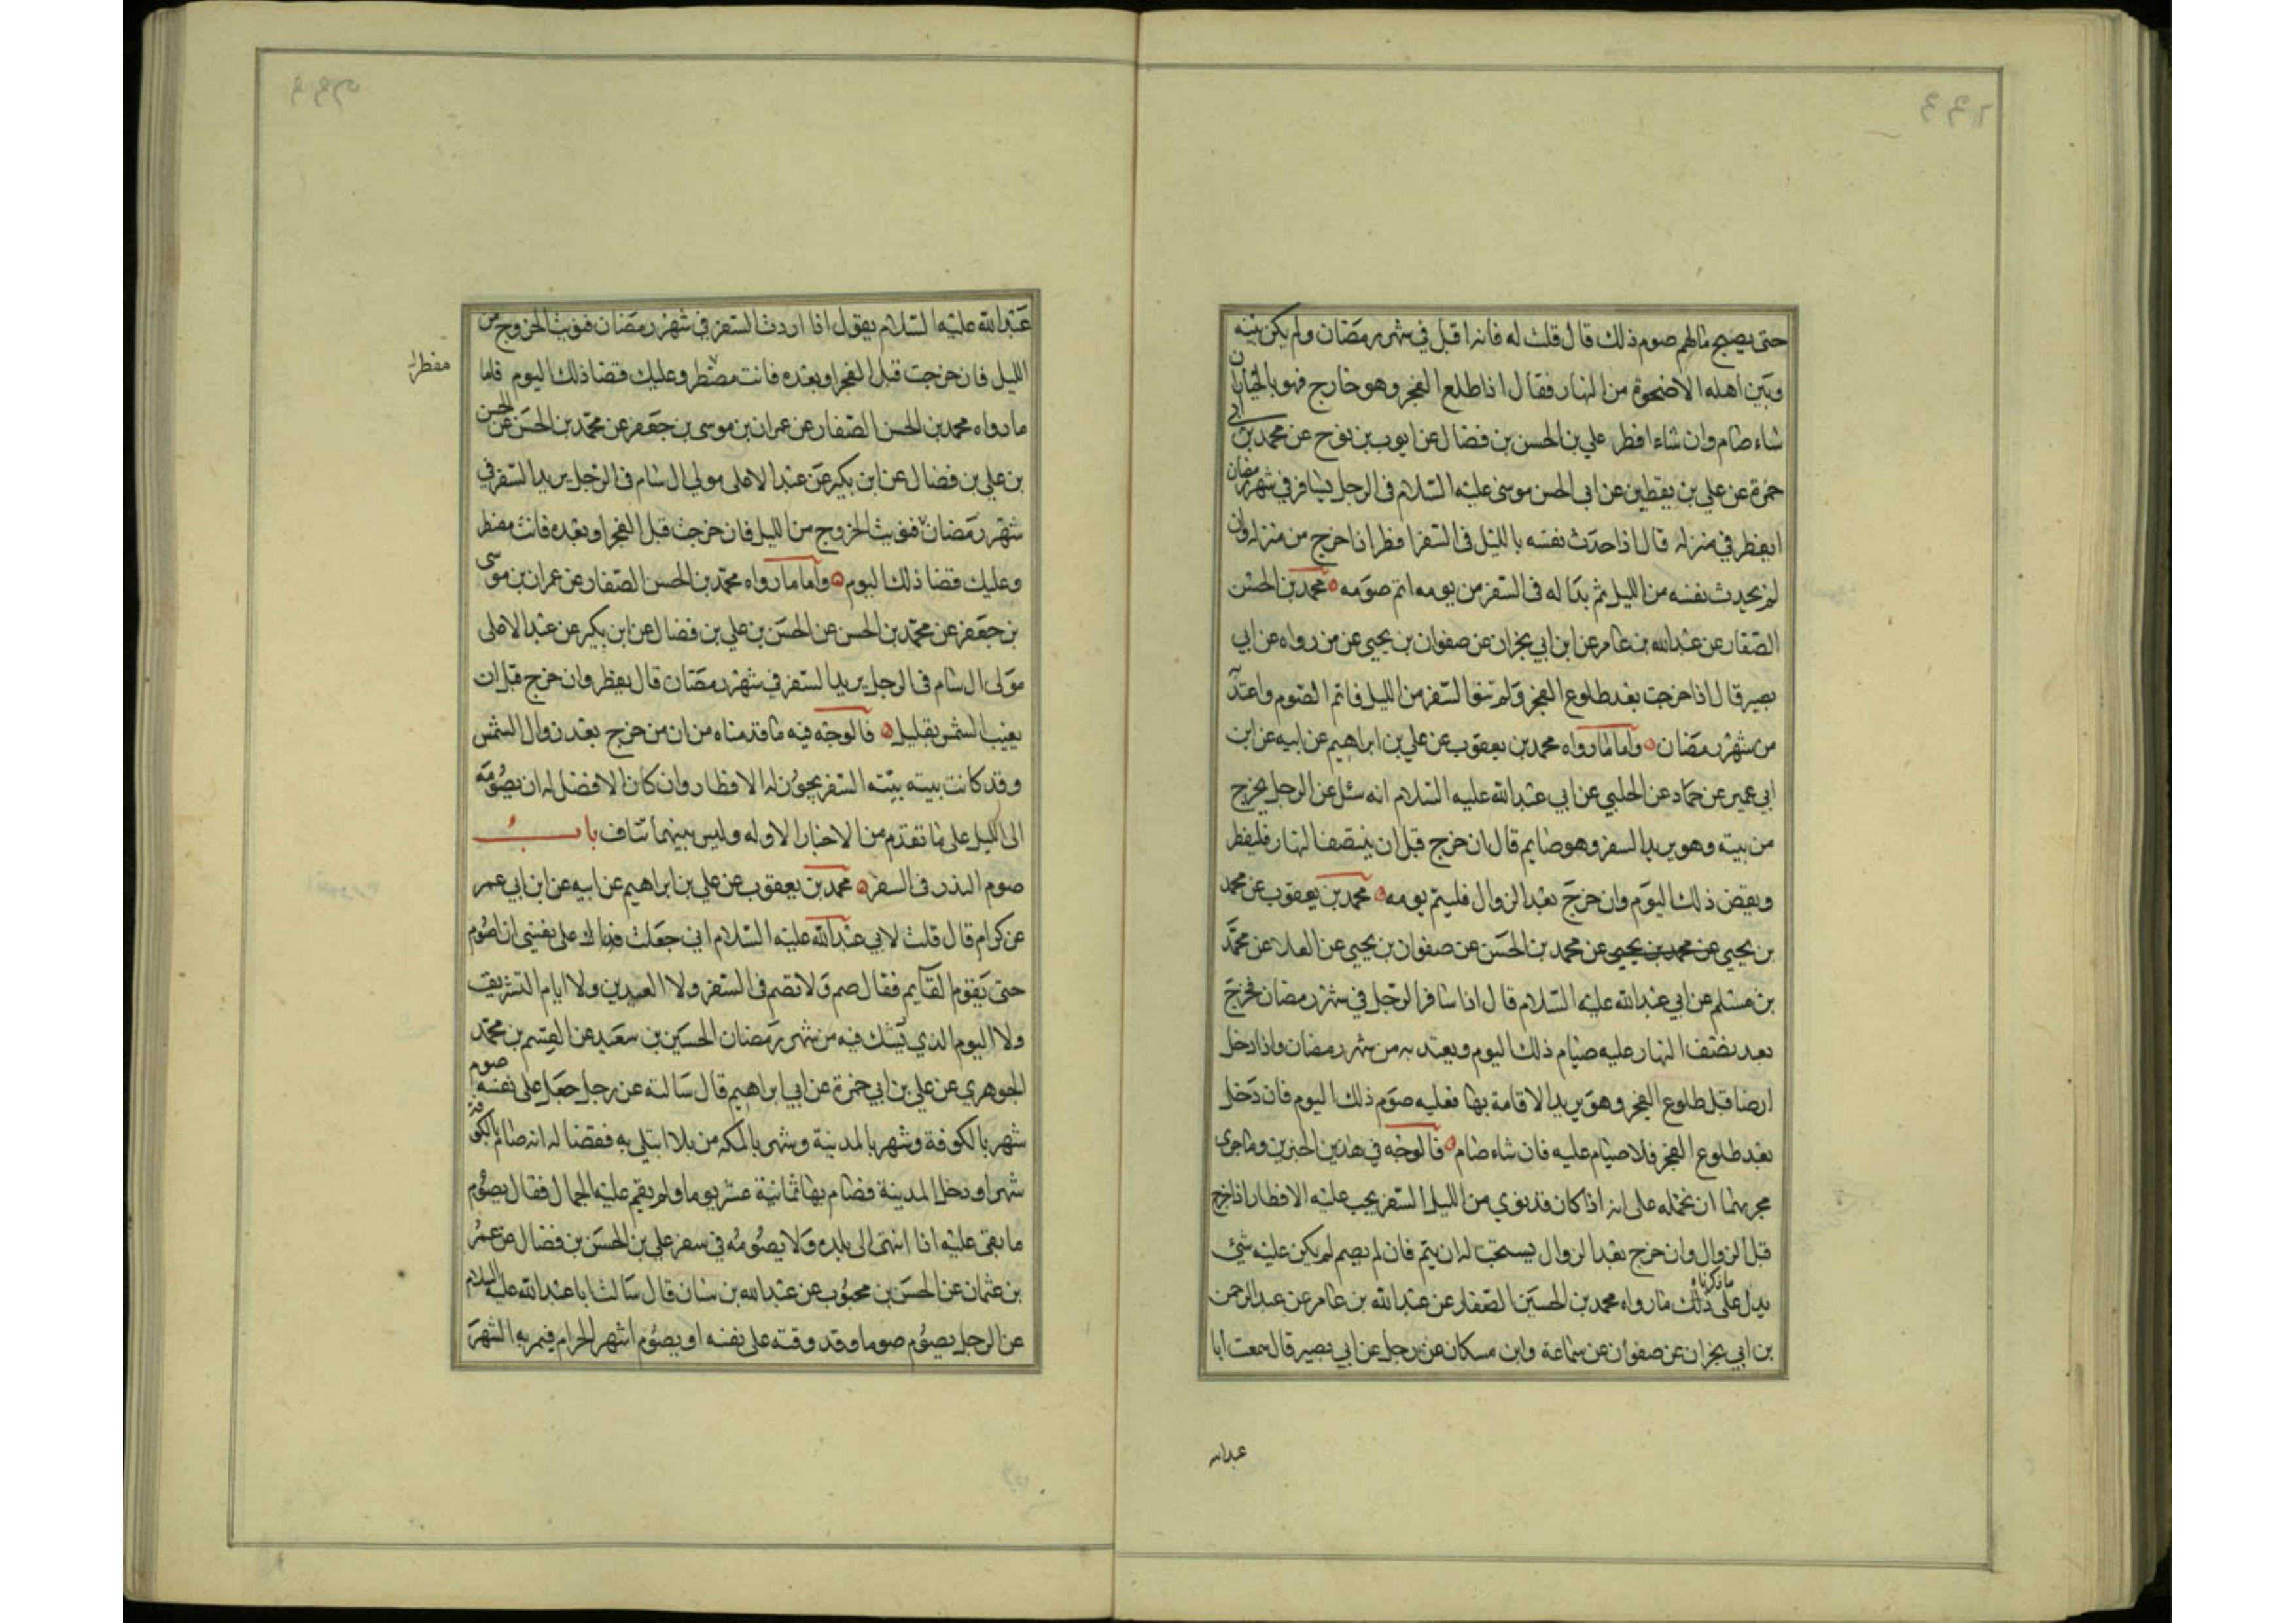 حتى يصبح ما لهم صوم ذلك قال قلت له فانه اقبل في شهر رمضان ولم يكن بينه
وبين اهله الا ضحوة من النهار فقال اذا طلع الفجر وهو خارج فهو بالخيار ان
شاء صام وان شاء افطر علي بن الحسن بن فضال عن ايوب بن نوح عن محمد بن ابي
حمزة عن علي بن يقطين عن ابي الحسن موسى عليه السلام في الرجل يسافر في شهر رمضان
ايفطر في منزله قال اذا حدث نفسه بالليل في السفر افطر اذا خرج من منزله وان
لم يحدث نفسه من الليل ثم بدا له في السفر من يومه اتم صومه محمد بن الحسن
الصفار عن عبد الله بن عامر عن ابن ابي نجران عن صفوان بن يحيى عن من رواه عن ابي
بصير قال اذا خرجت بعد طلوع الفجر ولم تنو السفر من الليل فاتم الصوم واعتد به
من شهر رمضان واما ما رواه محمد بن يعقوب عن علي بن ابراهيم عن ابيه عن ابن
ابي عمير عن حماد عن الحلبي عن ابي عبد الله عليه السلام انه سئل عن الرجل يخرج
من بيته وهو يريد السفر وهو صايم قال ان خرج قبل ان ينتصف النهار فليفطر
ويقض ذلك اليوم وان خرج بعد الزوال فليتم يومه محمد بن يعقوب عن محمد
بن يحيى عن محمد بن يحيى عن محمد بن الحسن عن صفوان بن يحيى عن العلا عن محمد
بن مسلم عن ابي عبد الله عليه السلام قال اذا سافر الرجل في شهر رمضان فخرج
بعد نصف النهار عليه صيام ذلك اليوم ويعتد به من شهر رمضان واذا دخل
ارضا قبل طلوع الفجر وهو يريد الاقامة بها فعليه صوم ذلك اليوم فان دخل
بعد طلوع الفجر فلا صيام عليه فان شاء صام فالوجه في هذين الخبرين وما جرى
مجريهما ان نحمله على انه اذا كان قد نوى من الليل السفر يجب عليه الافطار اذا خرج
قبل الزوال وان خرج بعد الزوال يستحب له ان يتم فان لم يصم لم يكن عليه شئ
يدل على ذلك ما ذكرناه ما رواه محمد بن الحسين الصفار عن عبد الله بن عامر عن عبد الرحمن
بن ابي نجران عن صفوان عن سماعة وابن مسكان عن رجل عن ابي بصير قال سمعت ابا
عبد الله
عبد الله عليه السلام يقول اذا اردت السفر في شهر رمضان فنويت الخروج من
الليل فان خرجت قبل الفجر او بعده فانت مفطر وعليك قضا ذلك اليوم فاما
مفطر
ما رواه محمد بن الحسن الصفار عن عمران بن موسى بن جعفر عن محمد بن الحسن عن الحسن
بن علي بن فضال عن ابن بكير عن عبد الاعلى مولى ال سام في الرجل يريد السفر في
شهر رمضان فنويت الخروج من الليل فان خرجت قبل الفجر او بعده فانت مفطر
وعليك قضا ذلك اليوم واما ما رواه محمد بن الحسن الصفار عن عمران بن موسى
بن جعفر عن محمد بن الحسن عن الحسن بن علي بن فضال عن ابن بكير عن عبد الاعلى
مولى ال سام في الرجل يريد السفر في شهر رمضان قال يفطر وان خرج قبل ان
يغيب الشمس بقليل فالوجه فيه ما قدمناه من ان من خرج بعد زوال الشمس
وقد كانت بيته بيته السفر يجوز له الافطار وان كان الافضل له ان يصومه
الى الليل على ما تقدم من الاخبار الاوله وليس بينهما تناف باب
صوم النذر في السفر محمد بن يعقوب عن علي بن ابراهيم عن ابيه عن ابن ابي عمر
عن كرام قال قلت لابي عبد الله عليه السلام اني جعلت فداك على نفسي ان اصوم
حتى يقوم القايم فقال صم ولا تصم في السفر ولا العيدين ولا ايام التشريق
ولا اليوم الذي يشك فيه من شهر رمضان الحسين بن سعيد عن القسم بن محمد
الجوهري عن علي بن ابي حمزة عن ابي ابراهيم قال سالته عن رجل جعل على نفسه صوم
شهر بالكوفة وشهر بالمدينة وشهر بالمكه من بلا ابتلي به فقضا له انه صام بالكوفة
شهرا ودخل المدينة فصام بها ثمانية عشر يوما ولم يقم عليه الجمال فقال يصوم
ما بقي عليه اذا انتهى الى بلده ولا يصومه في سفر علي بن الحسن بن فضال عن عمرو
بن عثمان عن الحسن بن محبوب عن عبد الله بن سنان قال سالت ابا عبد الله عليه السلام
عن الرجل يصوم صوما وقد وقته على نفسه او يصوم اشهر الحرام فيمر به الشهر